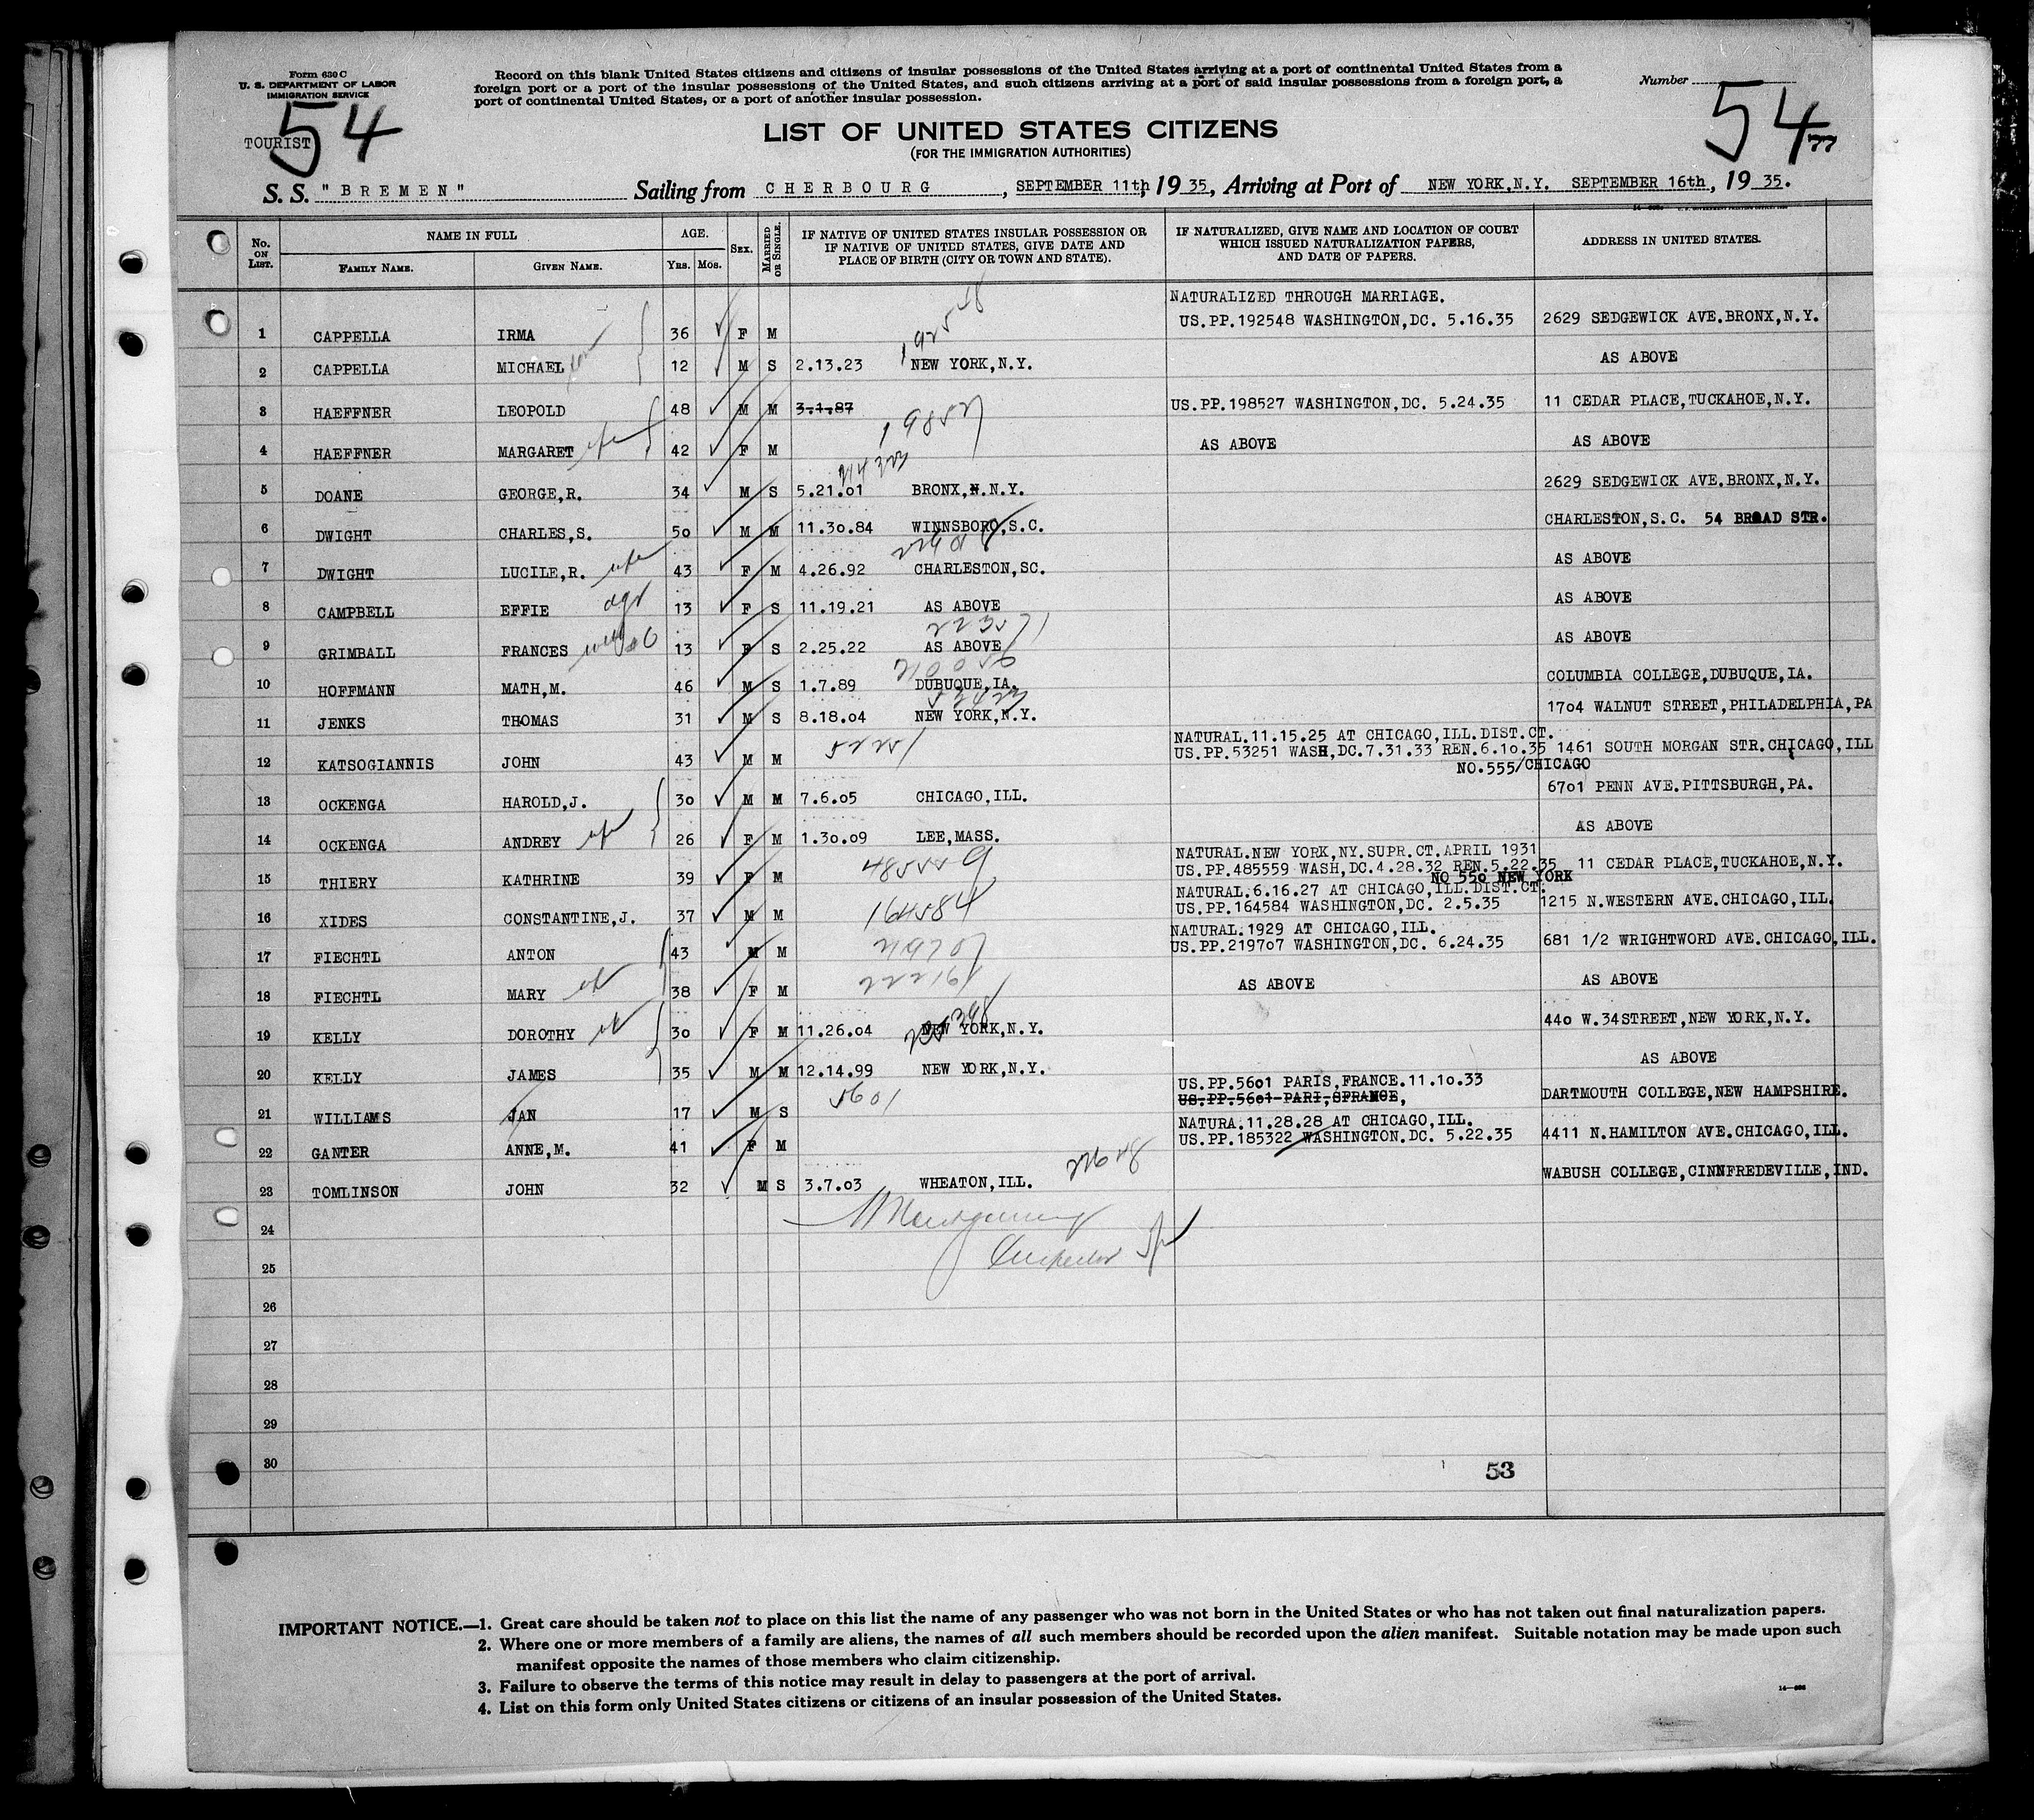 Form 630 C
U. S. DEPARTMENT OF LABOR
IMMIGRATION SERVICE
Record on this blank United States citizens and citizens of insular possessions of the United States arriving at a port of continental United States from a
foreign port or a port of the insular possessions of the United States, and such citizens arriving at a port of said insular possessions from a foreign port, a
port of continental United States, or a port of another insular possession.
Number
54
TOURIST
54
77
LIST OF UNITED STATES CITIZENS
(FOR THE IMMIGRATION AUTHORITIES)
S. S. "BREMEN" Sailing from CHERBOURG, SEPTEMBER 11th, 1935, Arriving at Port of NEW YORK,N.Y. SEPTEMBER 16th, 1935.
No. ON LIST. NAME IN FULL FAMILY NAME. GIVEN NAME. AGE. YRS. MOS. SEX. MARRIED OR SINGLE. IF NATIVE OF UNITED STATES INSULAR POSSESSION OR IF NATIVE OF UNITED STATES, GIVE DATE AND PLACE OF BIRTH (CITY OR TOWN AND STATE). IF NATURALIZED, GIVE NAME AND LOCATION OF COURT WHICH ISSUED NATURALIZATION PAPERS, AND DATE OF PAPERS. ADDRESS IN UNITED STATES.
NATURALIZED THROUGH MARRIAGE.
1 CAPPELLA IRMA 36 F M US.PP.192548 WASHINGTON,DC. 5.16.35 2629 SEDGEWICK AVE.BRONX,N.Y.
192548
2 CAPPELLA MICHAEL son 12 M S 2.13.23 NEW YORK,N.Y. AS ABOVE
3 HAEFFNER LEOPOLD 48 M M 3.1.87 US.PP.198527 WASHINGTON,DC. 5.24.35 11 CEDAR PLACE,TUCKAHOE,N.Y.
198527
4 HAEFFNER MARGARET wife 42 F M AS ABOVE AS ABOVE
5 DOANE GEORGE,R. 34 M S 5.21.01 BRONX,N.N.Y. 2629 SEDGEWICK AVE.BRONX,N.Y.
6 DWIGHT CHARLES,S. 50 M M 11.30.84 WINNSBORO,S.C. CHARLESTON,S.C. 54 BROAD STR.
7 DWIGHT LUCILE,R. wife 43 F M 4.26.92 CHARLESTON,SC. AS ABOVE
8 CAMPBELL EFFIE dgt 13 F S 11.19.21 AS ABOVE AS ABOVE
9 GRIMBALL FRANCES 13 F S 2.25.22 AS ABOVE AS ABOVE
10 HOFFMANN MATH,M. 46 M S 1.7.89 DUBUQUE,IA. COLUMBIA COLLEGE,DUBUQUE,IA.
11 JENKS THOMAS 31 M S 8.18.04 NEW YORK,N.Y. 1704 WALNUT STREET,PHILADELPHIA,PA
NATURAL.11.15.25 AT CHICAGO,ILL.DIST.CT.
12 KATSOGIANNIS JOHN 43 M M 53251 US.PP.53251 WASH,DC.7.31.33 REN.6.10.35 1461 SOUTH MORGAN STR.CHICAGO,ILL
NO.555/CHICAGO
13 OCKENGA HAROLD,J. 30 M M 7.6.05 CHICAGO,ILL. 6701 PENN AVE.PITTSBURGH,PA.
14 OCKENGA ANDREY wife 26 F M 1.30.09 LEE,MASS. AS ABOVE
NATURAL.NEW YORK,NY.SUPR.CT.APRIL 1931
15 THIERY KATHRINE 39 F M 485559 US.PP.485559 WASH,DC.4.28.32 REN.5.22.35 11 CEDAR PLACE,TUCKAHOE,N.Y.
NO 550 NEW YORK
NATURAL.6.16.27 AT CHICAGO,ILL.DIST.CT.
16 XIDES CONSTANTINE,J. 37 M M 164584 US.PP.164584 WASHINGTON,DC. 2.5.35 1215 N.WESTERN AVE.CHICAGO,ILL.
NATURAL.1929 AT CHICAGO,ILL.
17 FIECHTL ANTON 43 M M 219707 US.PP.219707 WASHINGTON,DC. 6.24.35 681 1/2 WRIGHTWORD AVE.CHICAGO,ILL.
18 FIECHTL MARY wf 38 F M AS ABOVE AS ABOVE
19 KELLY DOROTHY wf 30 F M 11.26.04 NEW YORK,N.Y. 440 W.34STREET,NEW YORK,N.Y.
20 KELLY JAMES 35 M M 12.14.99 NEW YORK,N.Y. AS ABOVE
US.PP.5601 PARIS,FRANCE.11.10.33
21 WILLIAMS JAN 17 M S 5601 US.PP.5601 PARI,SFRANCE, DARTMOUTH COLLEGE,NEW HAMPSHIRE.
NATURA.11.28.28 AT CHICAGO,ILL.
22 GANTER ANNE,M. 41 F M US.PP.185322 WASHINGTON.DC. 5.22.35 4411 N.HAMILTON AVE.CHICAGO,ILL.
23 TOMLINSON JOHN 32 M S 3.7.03 WHEATON,ILL. WABUSH COLLEGE,CINNFREDEVILLE,IND.
24
Montgomery
Inspector
25
26
27
28
29
30
53
IMPORTANT NOTICE.—1. Great care should be taken not to place on this list the name of any passenger who was not born in the United States or who has not taken out final naturalization papers.
2. Where one or more members of a family are aliens, the names of all such members should be recorded upon the alien manifest. Suitable notation may be made upon such
manifest opposite the names of those members who claim citizenship.
3. Failure to observe the terms of this notice may result in delay to passengers at the port of arrival.
4. List on this form only United States citizens or citizens of an insular possession of the United States.